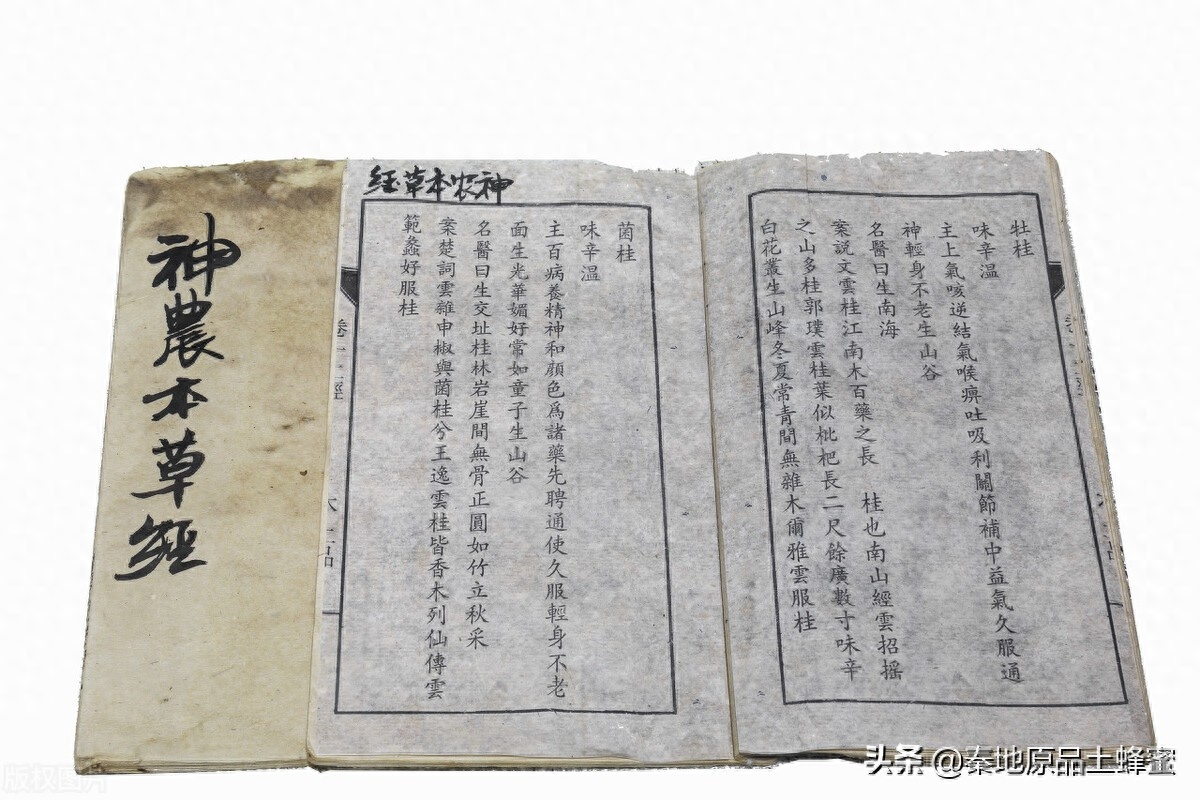 神農本草經
神农本草经
牡桂
味辛溫
主上氣咳逆結氣喉痹吐吸利關節補中益氣久服通
神輕身不老生山谷
名醫曰生南海
案說文雲桂江南木百藥之長 桂也南山經雲招搖
之山多桂郭璞雲桂葉似枇杷長二尺餘廣數寸味辛
白花叢生山峰冬夏常青間無雜木爾雅雲服桂
菌桂
味辛溫
主百病養精神和顏色為諸藥先聘通使久服輕身不老
面生光華媚好常如童子生山谷
名醫曰生交址桂林岩崖間無骨正圓如竹立秋采
案楚詞雲雜申椒與菌桂兮王逸雲桂皆香木列仙傳雲
範蠡好服桂
头条 @秦地原品土蜂蜜
版权图片